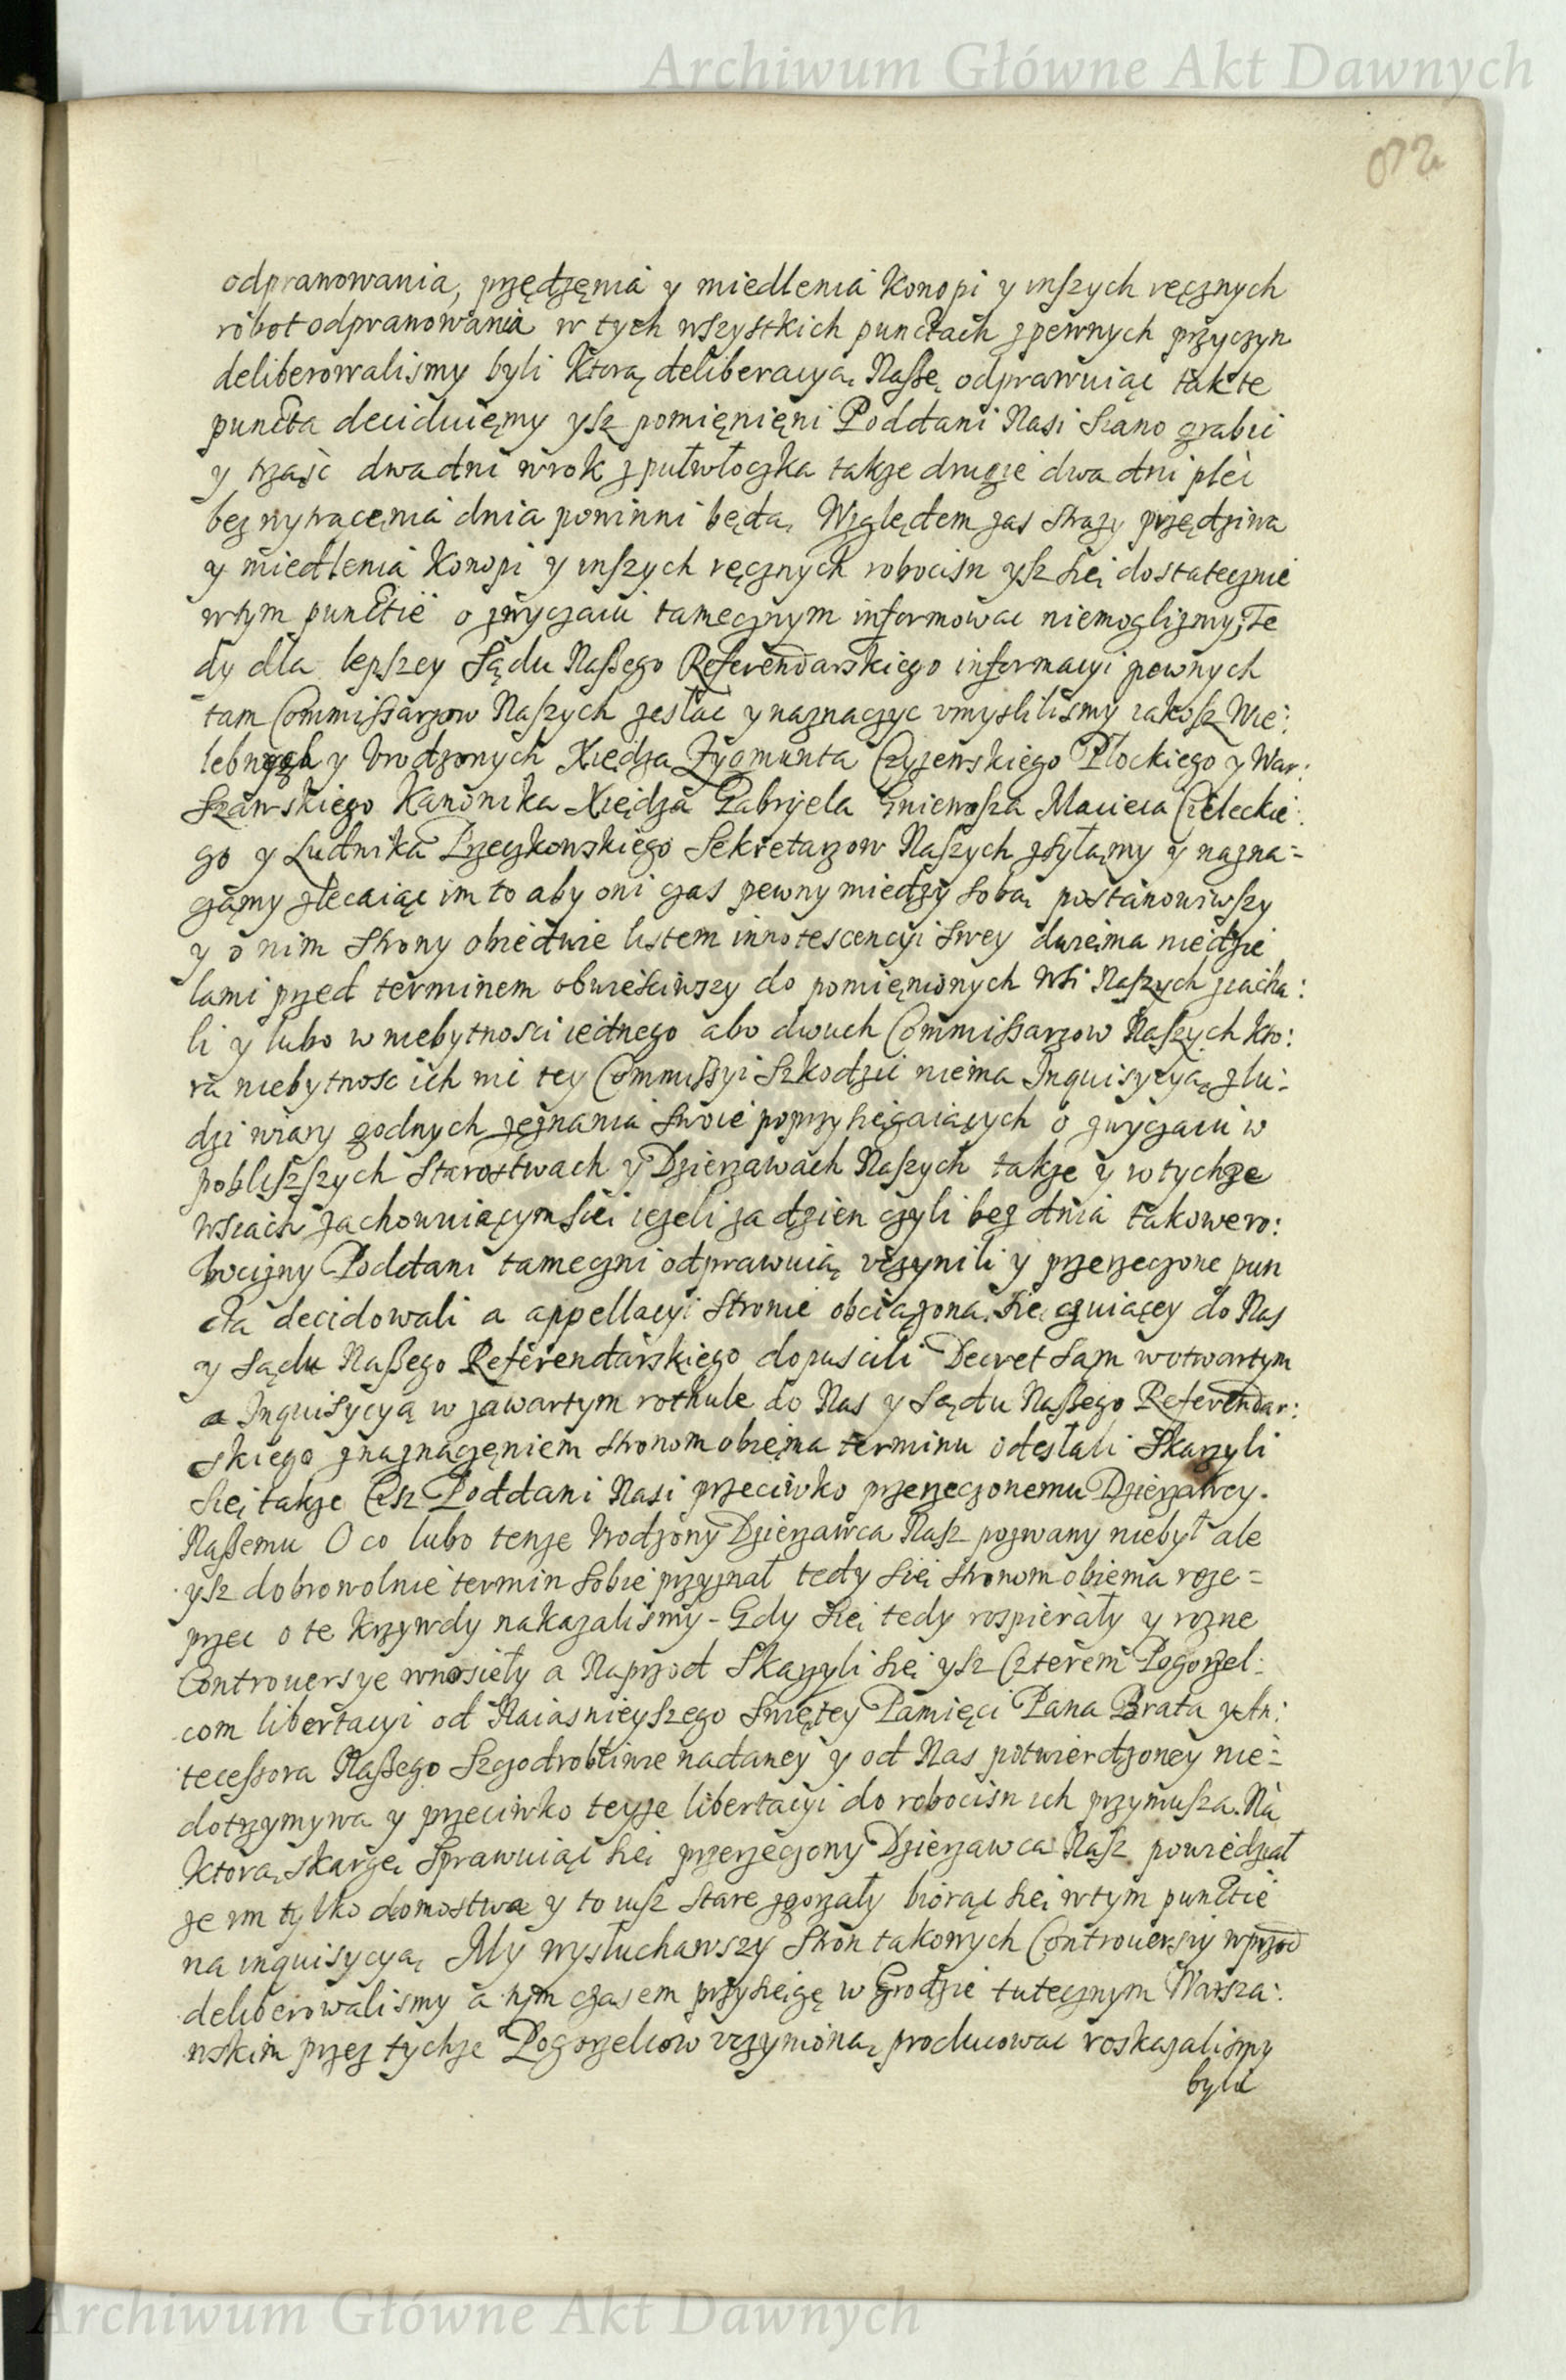 Archiwum Główne Akt Dawnych
odprawowania, przędzęnia y miedlenia Konopi y inszych ręcznych
robot odprawowania w tych wszystkich punctach z pewnych przyczyn
deliberowalismy byli Ktorą deliberacyą Naszę odprawuiąc tak te
puncta deciduięmy ysz pomięnięni Poddani Nasi Siano grabic
y trząść dwa dni w rok z pułwłoczka takze drugie dwa dni plec
bez wytracęnia dnia powinni będą. Względem zas strazy przędziwa
y miedlenia Konopi y inszych ręcznych robocisn ysz się dostatecznie
w tym punctie o zwyczaiu tamecznym informowac niemoglizmy; Te
dy dla lepszey Sądu Naszego Referendarskiego informacyi pewnych
tam Commissarzow Naszych zesłac y naznaczyc umyslilismy iakosz Wie:
lebnych y Urodzonych Xiędza Zygmunta Czyzewskiego Płockiego y War:
Szawskiego Kanonika Xiędza Gabryela Gniewosza Macieia Cieleckie:
go y Ludwika Sekretarzow Naszych zsyłamy y nazna=
czamy zlecaiąc im to aby oni czas pewny miedzy sobą postanowiwszy
y o nim strony obiedwie listem innotescencyi swey dwiema niedzie
lami przed terminem obwieściwszy do pomięnionych Wsi Naszych ziacha:
li y lubo w niebytnosci iednego abo dwuch Commissarzow Naszych kto:
ra niebytnosc ich nic tey Commissyi Szkodzic niema Inquisycyą z lu:
dzi wiary godnych zeznania swoie poprzysięgaiących o zwyczaiu w
pobliszszych Starostwach y Dzierzawach Naszych takze y w tychze
wsiach zachowuiącym się iezeli za dzien czyli bez dnia takowe ro:
bocizny Poddani tameczni odprawuią uczynili y przerzeczone pun
cta decidowali a appellacyi Stronie obciązoną się czuiącey do Nas
y Sądu Naszego Referendarskiego dopuscili Decret sam w otwartym
a Inquisycyą w zawartym rothule do Nas y Sądu Naszego Referendar:
skiego z naznaczęniem stronom obięma terminu odesłali Skarzyli
się takze Cisz Poddani Nasi przeciwko przerzeczonemu Dzierzawcy.
Naszemu O co lubo tenze Urodzony Dzierzawca Nasz pozwany niebył ale
ysz dobrowolnie termin sobie przyznał tedy się stronom obiema roze=
przec o te krzywdy nakazalismy - Gdy się tedy rospierały y rozne
Controuersye wnosieły a Naprzod Skarzyli się ysz Czterem Pogorzel:
com libertacyi od Naiasnieyszego Swiętey Pamięci Pana Brata y An:
tecessora Naszego Szczodrobliwie nadaney y od Nas potwierdzoney nie=
dotrzymywa y przeciwko teyze libertacyi do robocisn ich przymusza. Na
Ktorą skargę Sprawuiąc się przerzeczony Dzierzawca Nasz powiedział
ze im tylko domostwa y to iusz stare zgorzały biorąc się w tym punctie
na inquisycyą My wysłuchawszy stron takowych Controuersiy wprzod
deliberowalismy a tym czasem przysięgę w Grodzie tutecznym Warsza:
wskim przez tychze Pogorzelcow uczynioną producowac roskazalismy
byli
Archiwum Główne Akt Dawnych